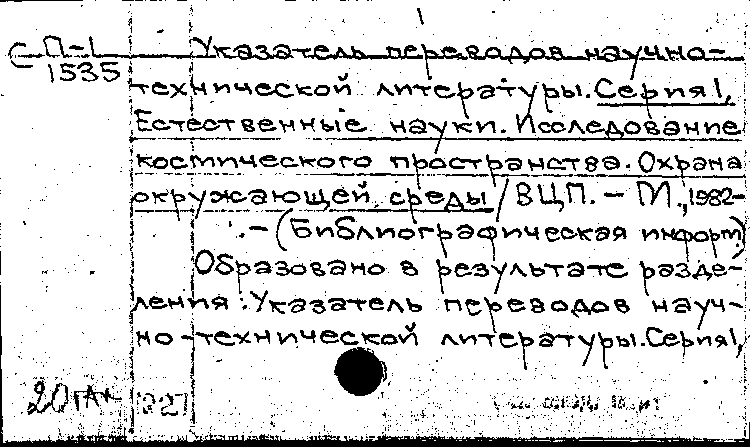 С П-1 Указатель переводов научно-
1535
технической литературы. Серия 1,
Естественные науки. Исследование
космического пространства. Охрана
окружающей среды / ВЦП. – М., 1982-
. – (Библиографическая информ.)
Образовано в результате разде-
ления: Указатель переводов науч-
но-технической литературы. Серия 1,